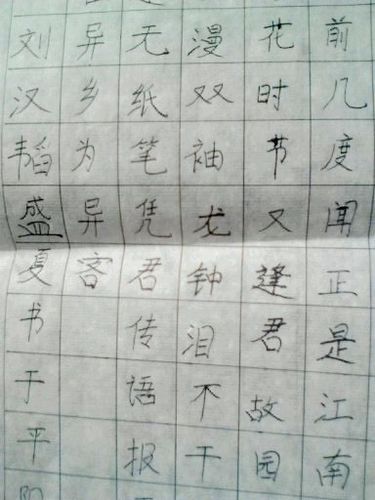 前几度闻正是江南
花时节又蓬君故园
漫双袖龙钟泪不干
无纸笔凭君传语报
异乡为异客
刘汉韬盛夏书于平